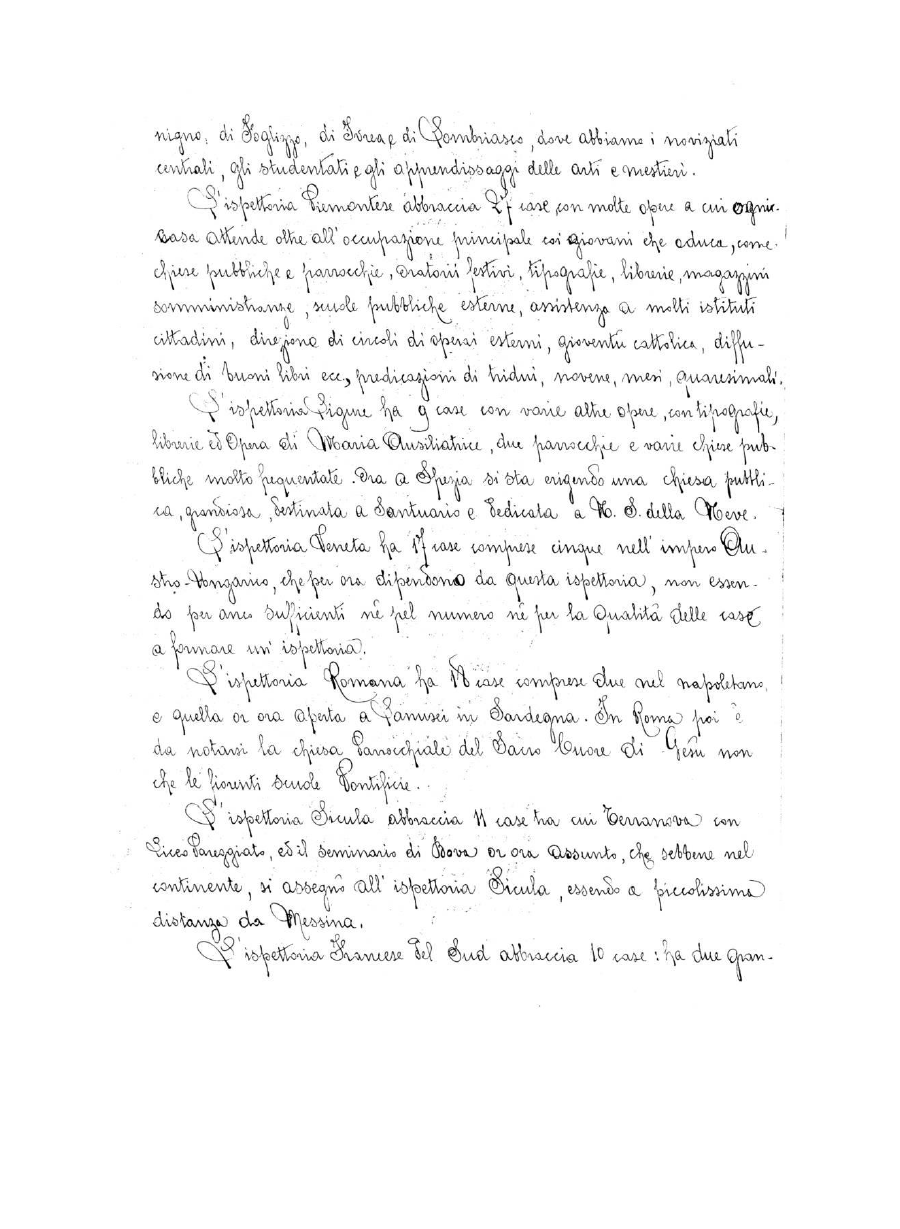 nigno, di Foglizzo, di Ivrea e di Lombriasco, dove abbiamo i noviziati
centrali, gli studentati e gli apprendissaggi delle arti e mestieri.
L'ispettoria Piemontese abbraccia 27 case con molte opere a cui ogni
casa attende oltre all'occupazione principale coi giovani che educa, come
chiese pubbliche e parrocchie, oratorii festivi, tipografie, librerie, magazzini
somministranze, scuole pubbliche esterne, assistenza a molti istituti
cittadini, direzione di circoli di operai esterni, gioventù cattolica, diffu-
sione di buoni libri ecc, predicazioni di tridui, novene, mesi, quaresimali.
L'ispettoria Ligure ha 9 case con varie altre opere, con tipografie,
librerie ed Opera di Maria Ausiliatrice, due parrocchie e varie chiese pub-
bliche molto frequentate. Ora a Spezia si sta erigendo una chiesa pubbli-
ca, grandiosa, destinata a Santuario e dedicata a N. S. della Neve.
L'ispettoria Veneta ha 17 case comprese cinque nell'impero Au-
stro-Ungarico, che per ora dipendono da questa ispettoria, non essen-
do per anco sufficienti nè pel numero nè per la qualità delle case
a formare un'ispettoria.
L'ispettoria Romana ha case comprese due nel napoletano,
e quella or ora aperta a Lanusei in Sardegna. In Roma poi è
da notarsi la chiesa Parrocchiale del Sacro Cuore di Gesù non
che le fiorenti scuole Pontificie.
L'ispettoria Sicula abbraccia 11 case tra cui Terranova con
Liceo Pareggiato, ed il seminario di Bova or ora assunto, che sebbene nel
continente, si assegnò all'ispettoria Sicula, essendo a piccolissima
distanza da Messina.
L'ispettoria Francese del Sud abbraccia 10 case: ha due gran-